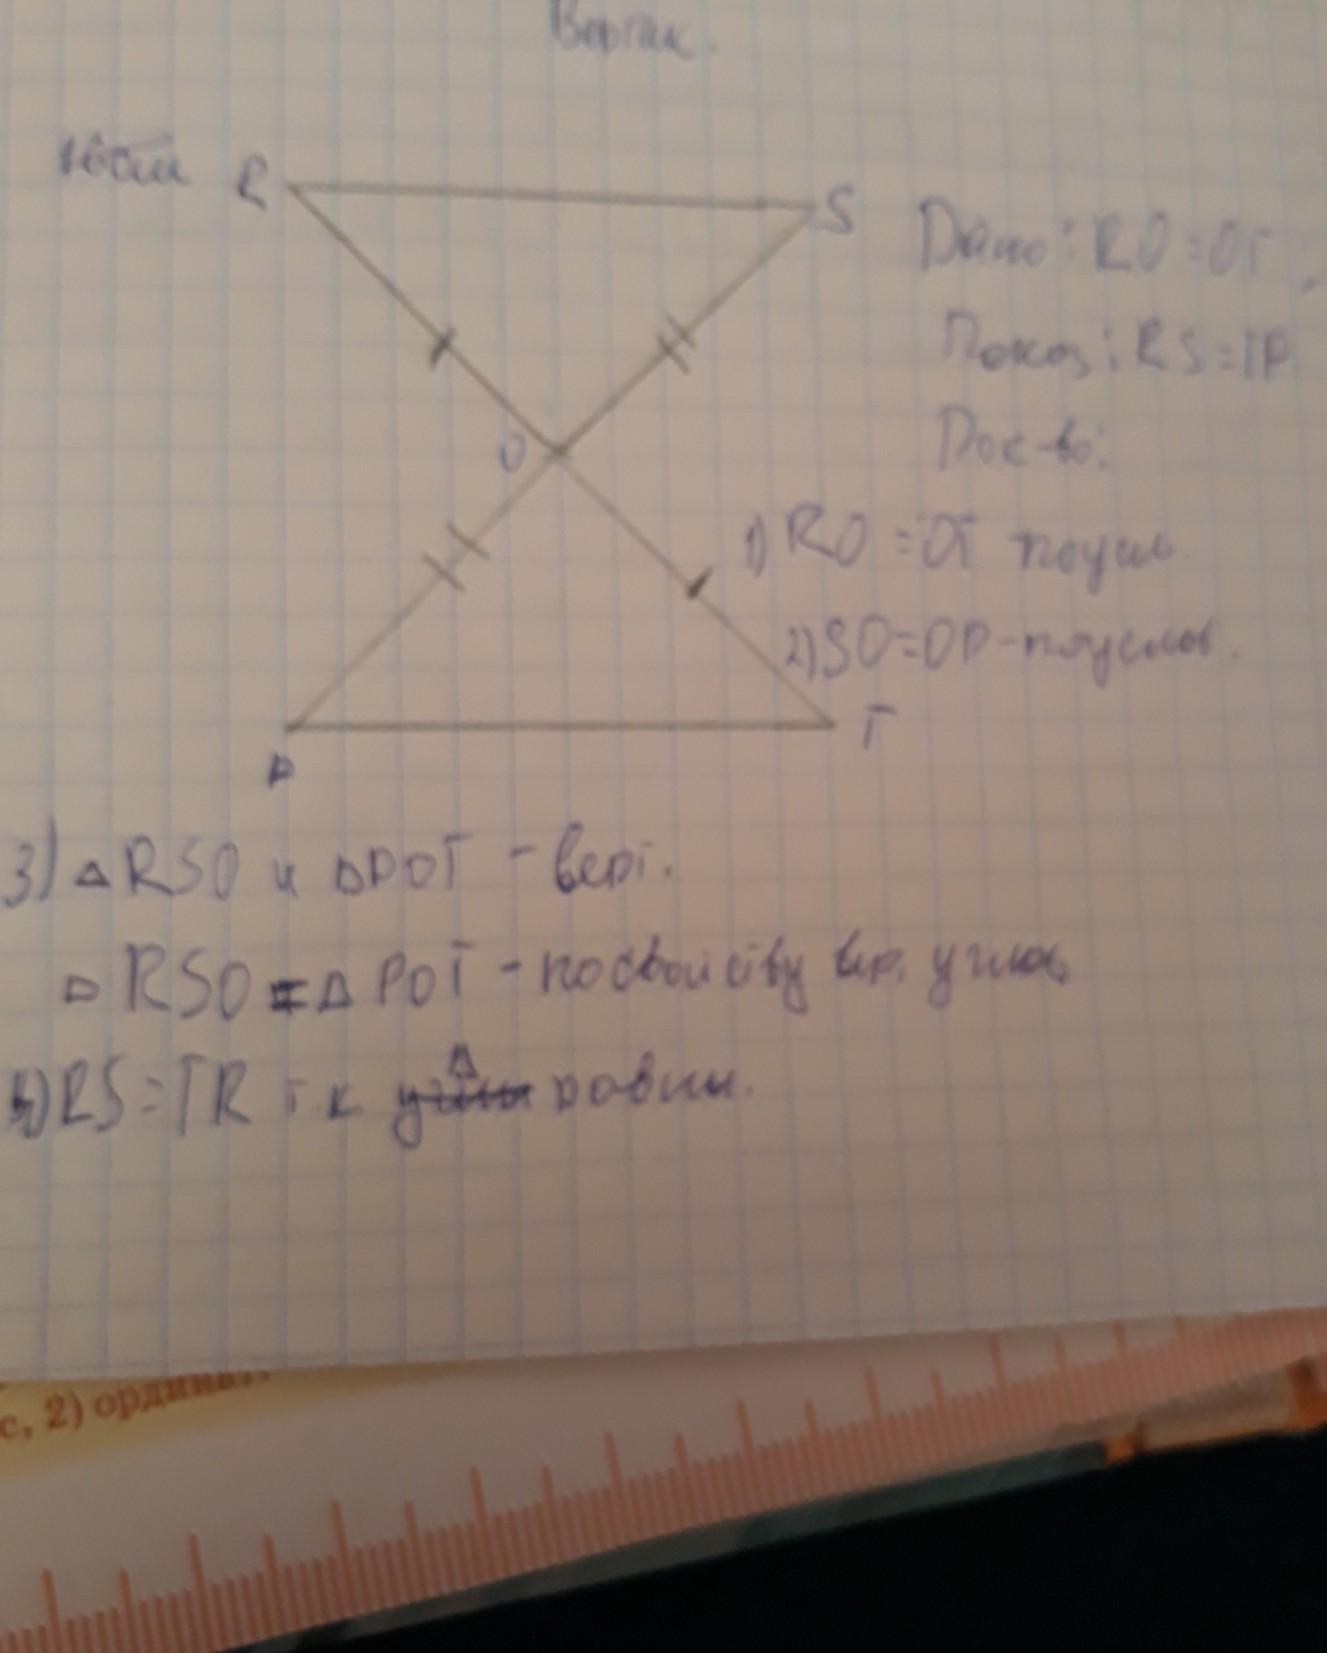 R
S
Дано: RO = OT,
Доказ: RS = TP
Док-во:
O
1) RO = OT по усл.
2) SO = OP - по услов.
P
T
3) △RSO и △POT - верт.
△RSO = △POT - по свойству вер. углов
4) RS = TR т.к △ равны.
с, 2) ордина